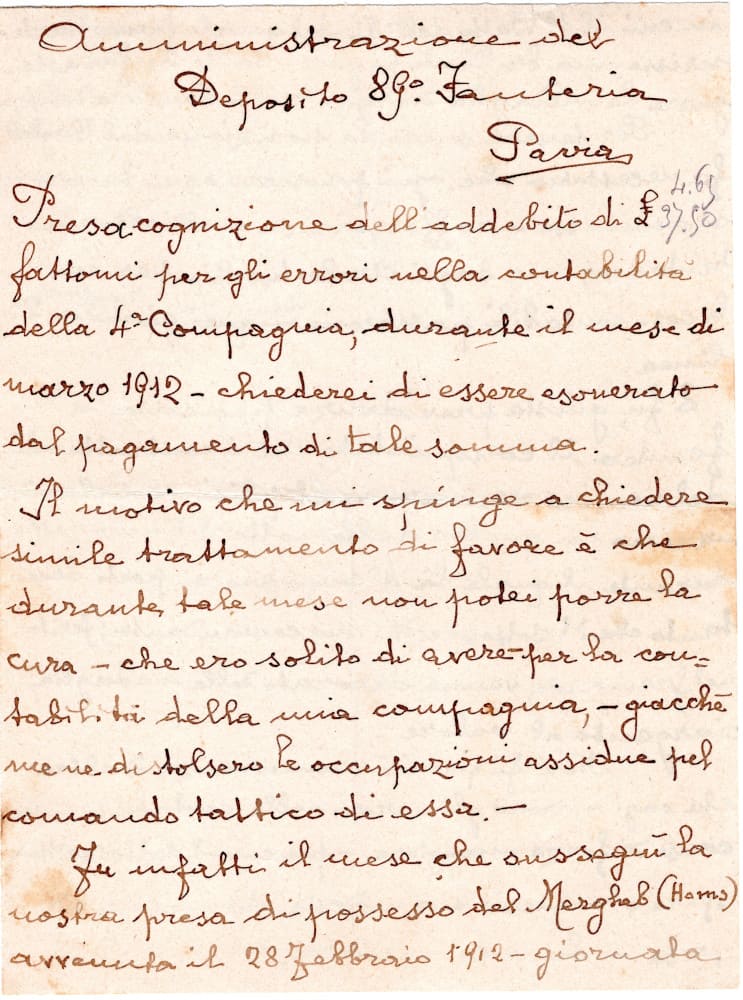 Amministrazione del
Deposito 89º. Fanteria
Pavia
4.65
Presa cognizione dell'addebito di £ 37.50
fattomi per gli errori nella contabilità
della 4ª Compagnia, durante il mese di
marzo 1912 - chiederei di essere esonerato
dal pagamento di tale somma.
Il motivo che mi spinge a chiedere
simile trattamento di favore è che
durante tale mese non potei porre la
cura - che ero solito di avere - per la con=
tabilità della mia compagnia, - giacchè
me ne distolsero le occupazioni assidue pel
comando tattico di essa. -
Fu infatti il mese che susseguì la
nostra presa di possesso del Mergheb (Homs)
avvenuta il 28 Febbraio 1912 - giornata